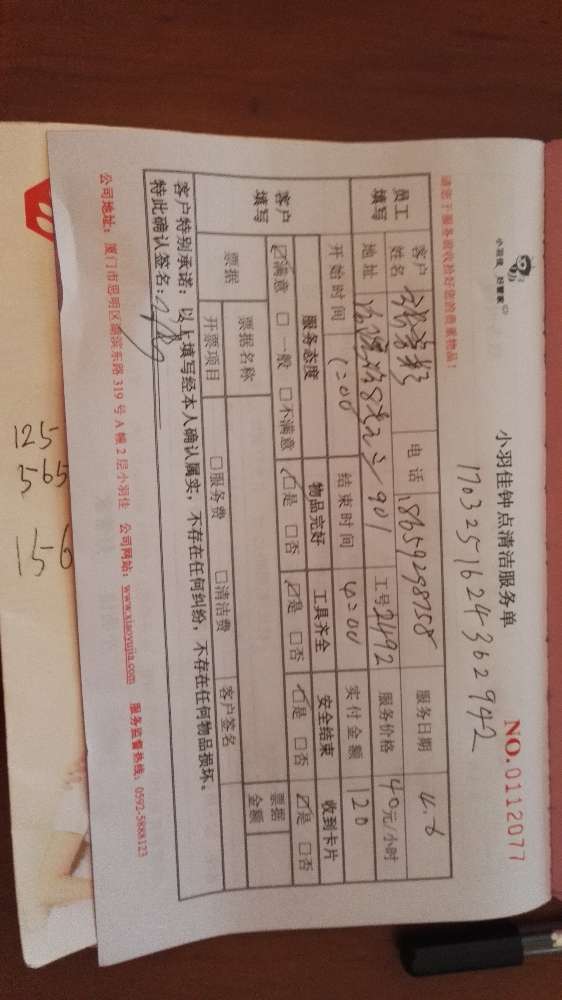 小羽佳 好管家
小羽佳钟点清洁服务单
NO.0112077
1703251624362942
请您于服务前收拾好您的贵重物品！
员工填写
客户姓名 电话 18659298758 服务日期 4.6
地址 901 工号 21492 服务价格 40元/小时
开始时间 1:00 结束时间 4:00 实付金额 120
客户填写
服务态度 物品完好 工具齐全 安全结束 收到卡片
☑满意 □一般 □不满意 ☑是 □否 ☑是 □否 ☑是 □否 ☑是 □否
票据 票据名称 票据金额
开票项目 □服务费 □清洁费 客户签名
客户特别承诺：以上填写经本人确认属实，不存在任何纠纷，不存在任何物品损坏。
特此确认签名：
公司地址：厦门市思明区湖滨东路 319 号 A 幢 2 层小羽佳 公司网站：www.xiaoyujia.com 服务监督热线：0592-5888123
125
565
156